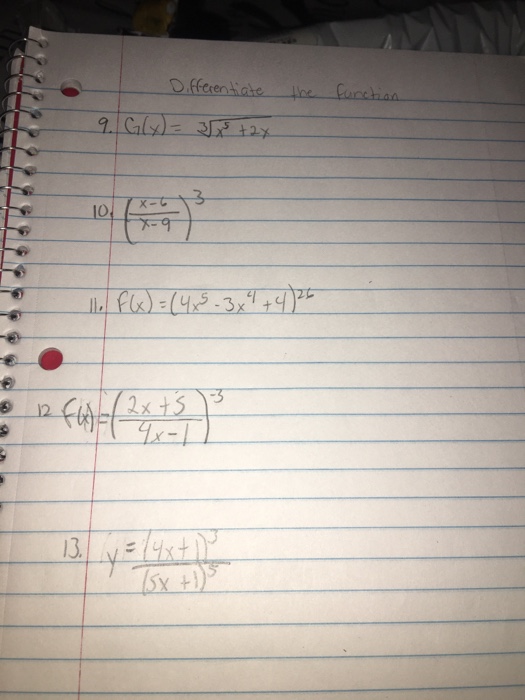 Differentiate the function
9. G(x) = ∛(x⁵ + 2x)
10. ((x-6)/(x-9))³
11. f(x) = (4x⁵ - 3x⁴ + 4)²⁶
12 f(x) = ((2x + 5)/(4x - 1))⁻³
13. y = (4x + 1)³/(5x + 1)⁵